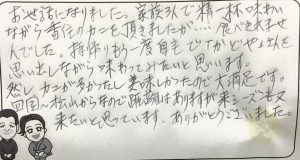 お世話になりました。家族3人で精一杯味わい
ながら香住のカニを頂きましたが…。食べきれませ
んでした。持帰りもう一度自宅で"かどやさんを
思い出しながら味わってみたいと思います。
然し、カニが多かったし美味しかったので大満足です。
四国〜松山からなので距離はありますが来シーズンも又
来たいと思っています。ありがとうございました。